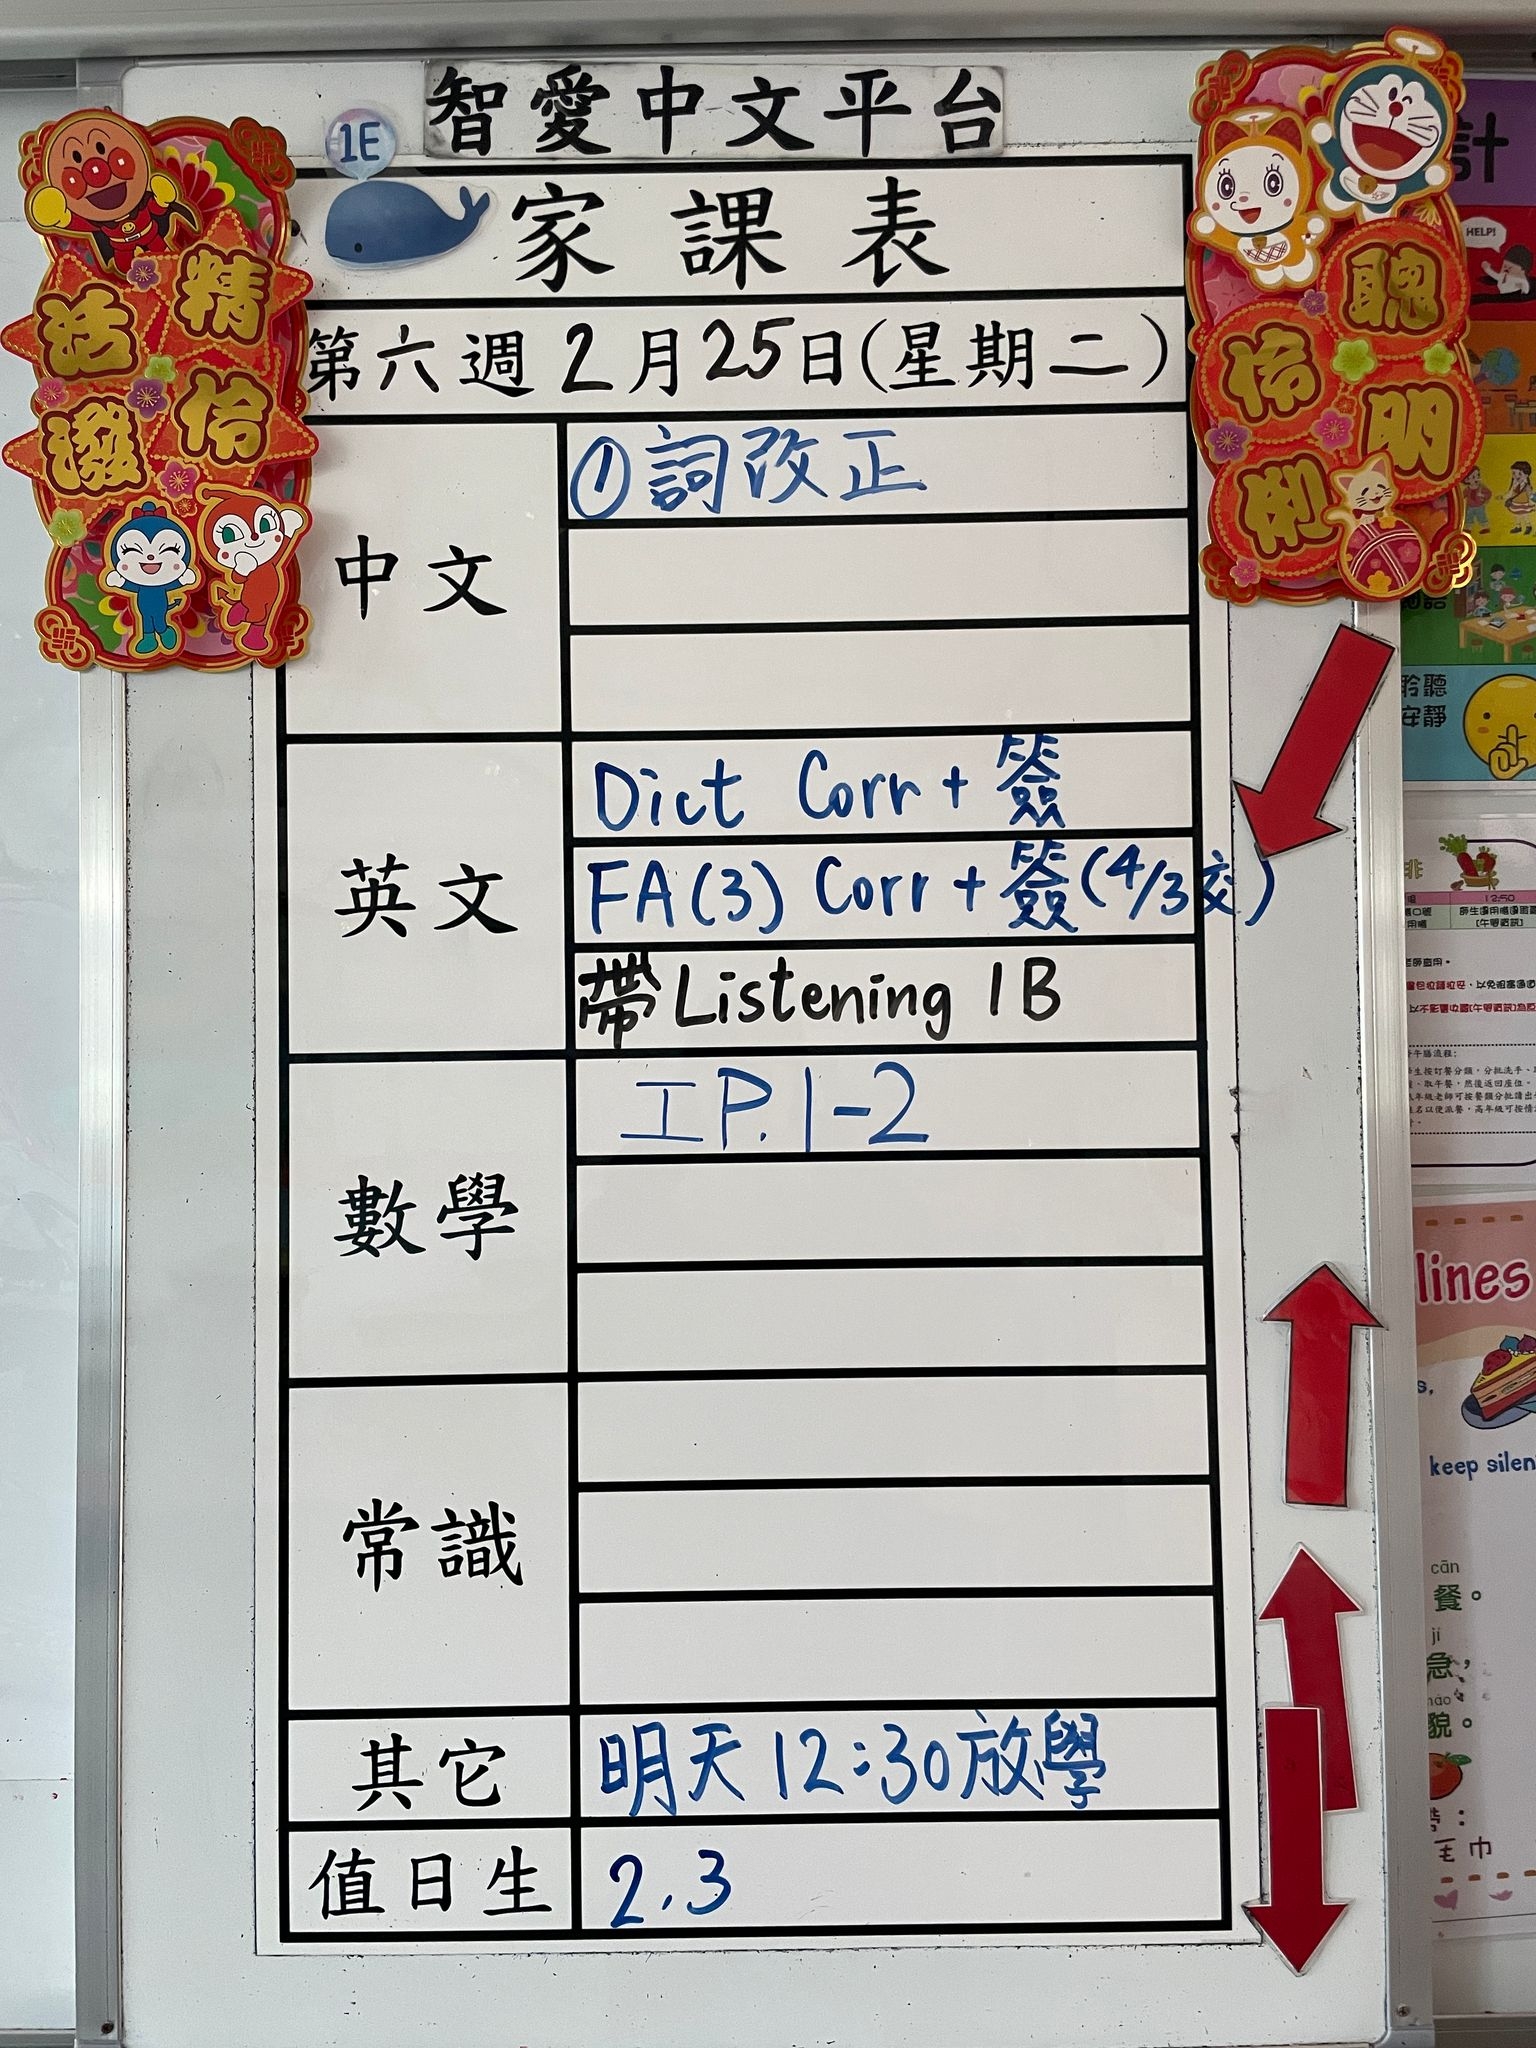 智愛中文平台
1E
家課表
第六週2月25日(星期二)
中文
①詞改正
英文
Dict Corr + 簽
FA(3) Corr + 簽(4/3交)
帶Listening 1B
數學
工P.1-2
常識
其它
明天12:30放學
值日生
2.3
精伶
活潑
聰明
伶俐
計
HELP!
聆聽
安靜
12:50
lines
keep silen
cān
餐。
急，
貌。
毛巾